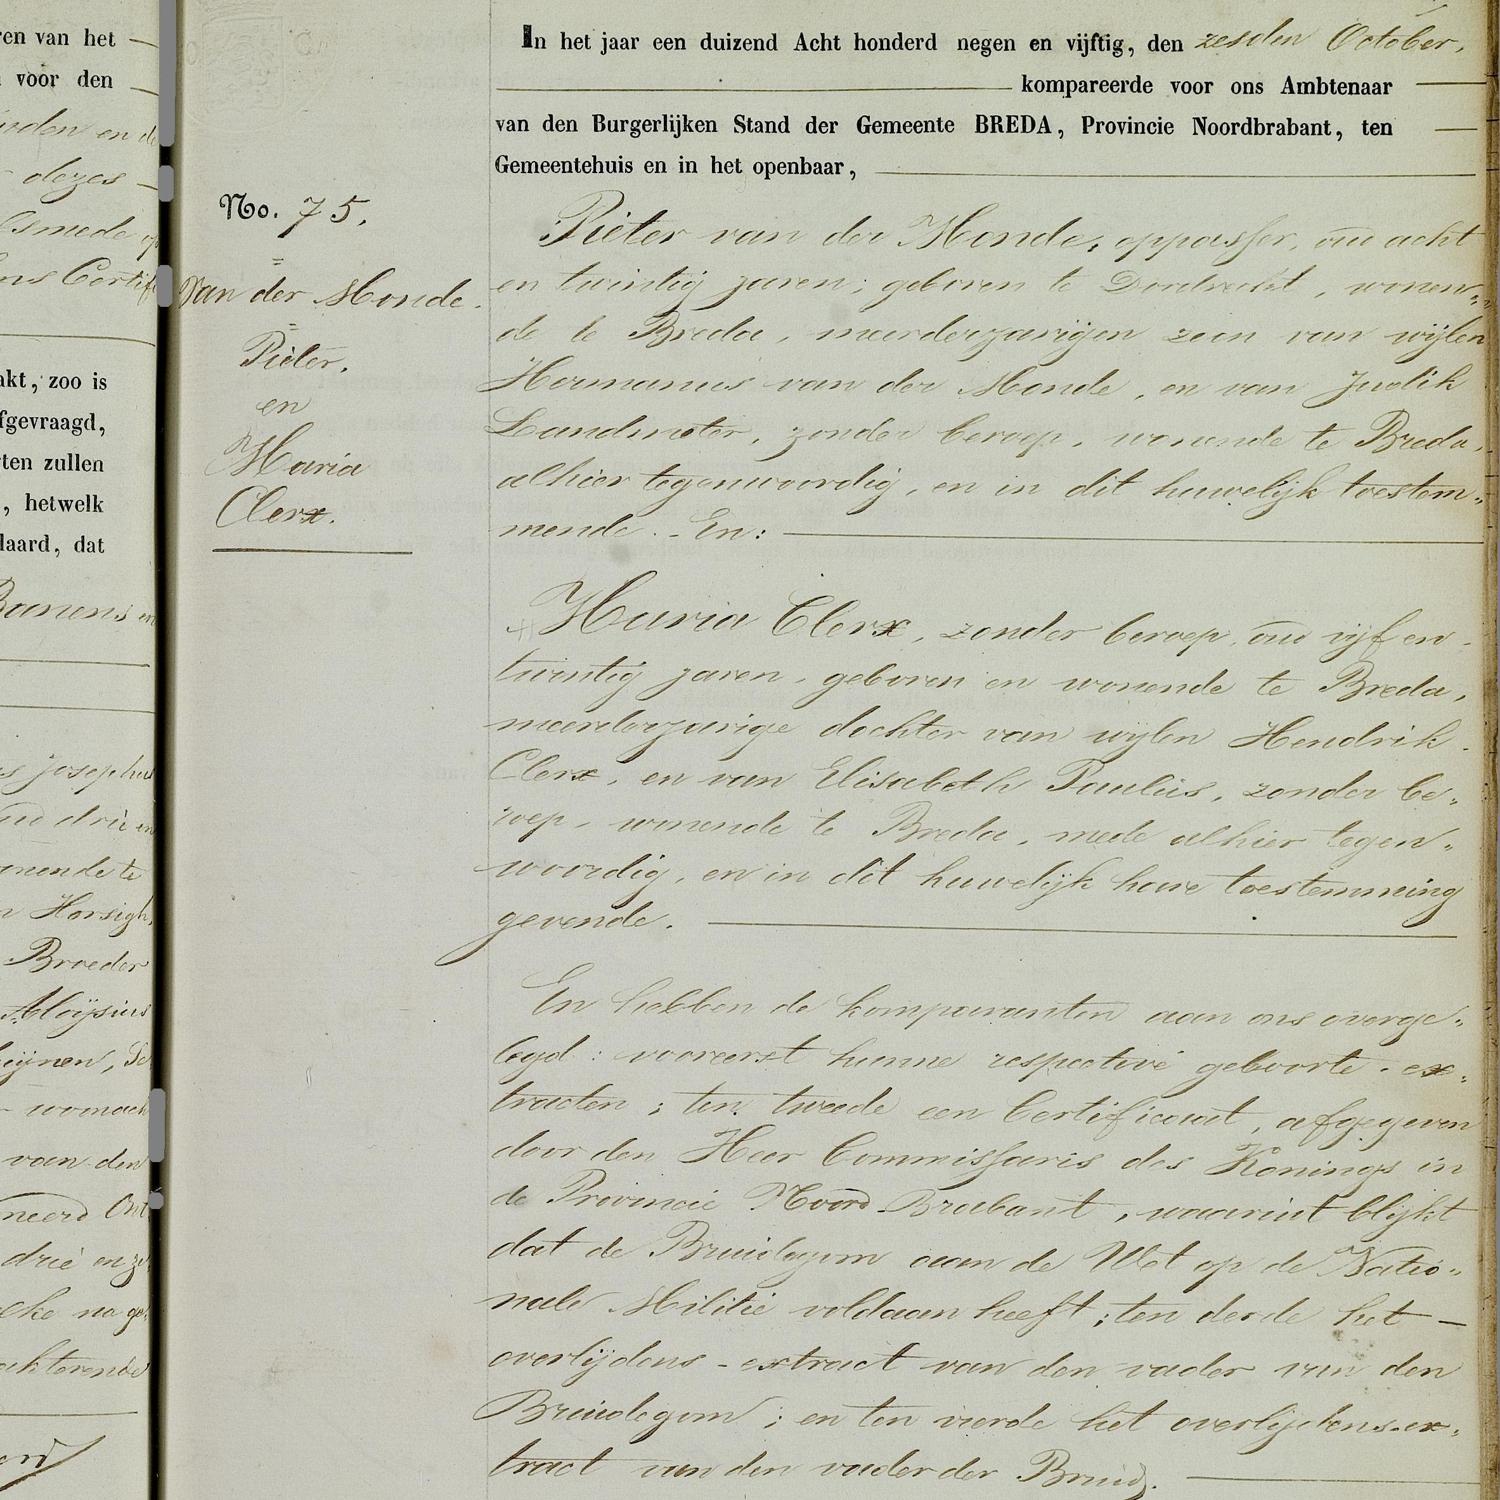 ren van het
voor den
inden en de
dezes
Gsmede op
ns Certif
akt, zoo is
fgevraagd,
ten zullen
, hetwelk
laard, dat
Banens en
s Josephus
ud drie en
onende te
n Horsigh,
Broeder
Aloÿsius
eijnen, Se
womach
van den
neerd Ont
drie en ze
elke na ge
akterende
No. 75.
Van der Monde.
Pieter,
en
Maria
Clerx.
In het jaar een duizend Acht honderd negen en vijftig, den zesden October,
kompareerde voor ons Ambtenaar
van den Burgerlijken Stand der Gemeente BREDA, Provincie Noordbrabant, ten
Gemeentehuis en in het openbaar,
Pieter van der Monde, oppasser, oud acht
en twintig jaren, geboren te Dordrecht, wonen„
de te Breda, meerderjarigen zoon van wijlen
Hermanus van der Monde, en van Judik
Landmeter, zonder beroep, wonende te Breda,
alhier tegenwoordig, en in dit huwelijk toestem„
mende. - En:
Maria Clerx, zonder beroep, oud vijf en
twintig jaren, geboren en wonende te Breda,
meerderjarige dochter van wijlen Hendrik
Clerx, en van Elisabeth Paulus, zonder be„
roep, wonende te Breda, mede alhier tegen„
woordig, en in dit huwelijk hare toestemming
gevende.
En hebben de komparanten aan ons overge„
legd: vooreerst hunne respective geboorte-ex„
tracten; ten tweede een Certificaat, afgegeven
door den Heer Commissaris des Konings in
de Provincie Noord Brabant, waaruit blijkt
dat de Bruidegom aan de Wet op de Natio„
nale Militie voldaan heeft; ten derde het
overlijdens-extract van den vader van den
Bruidegom; en ten vierde het overlijdens-ex„
tract van den vader der Bruid.